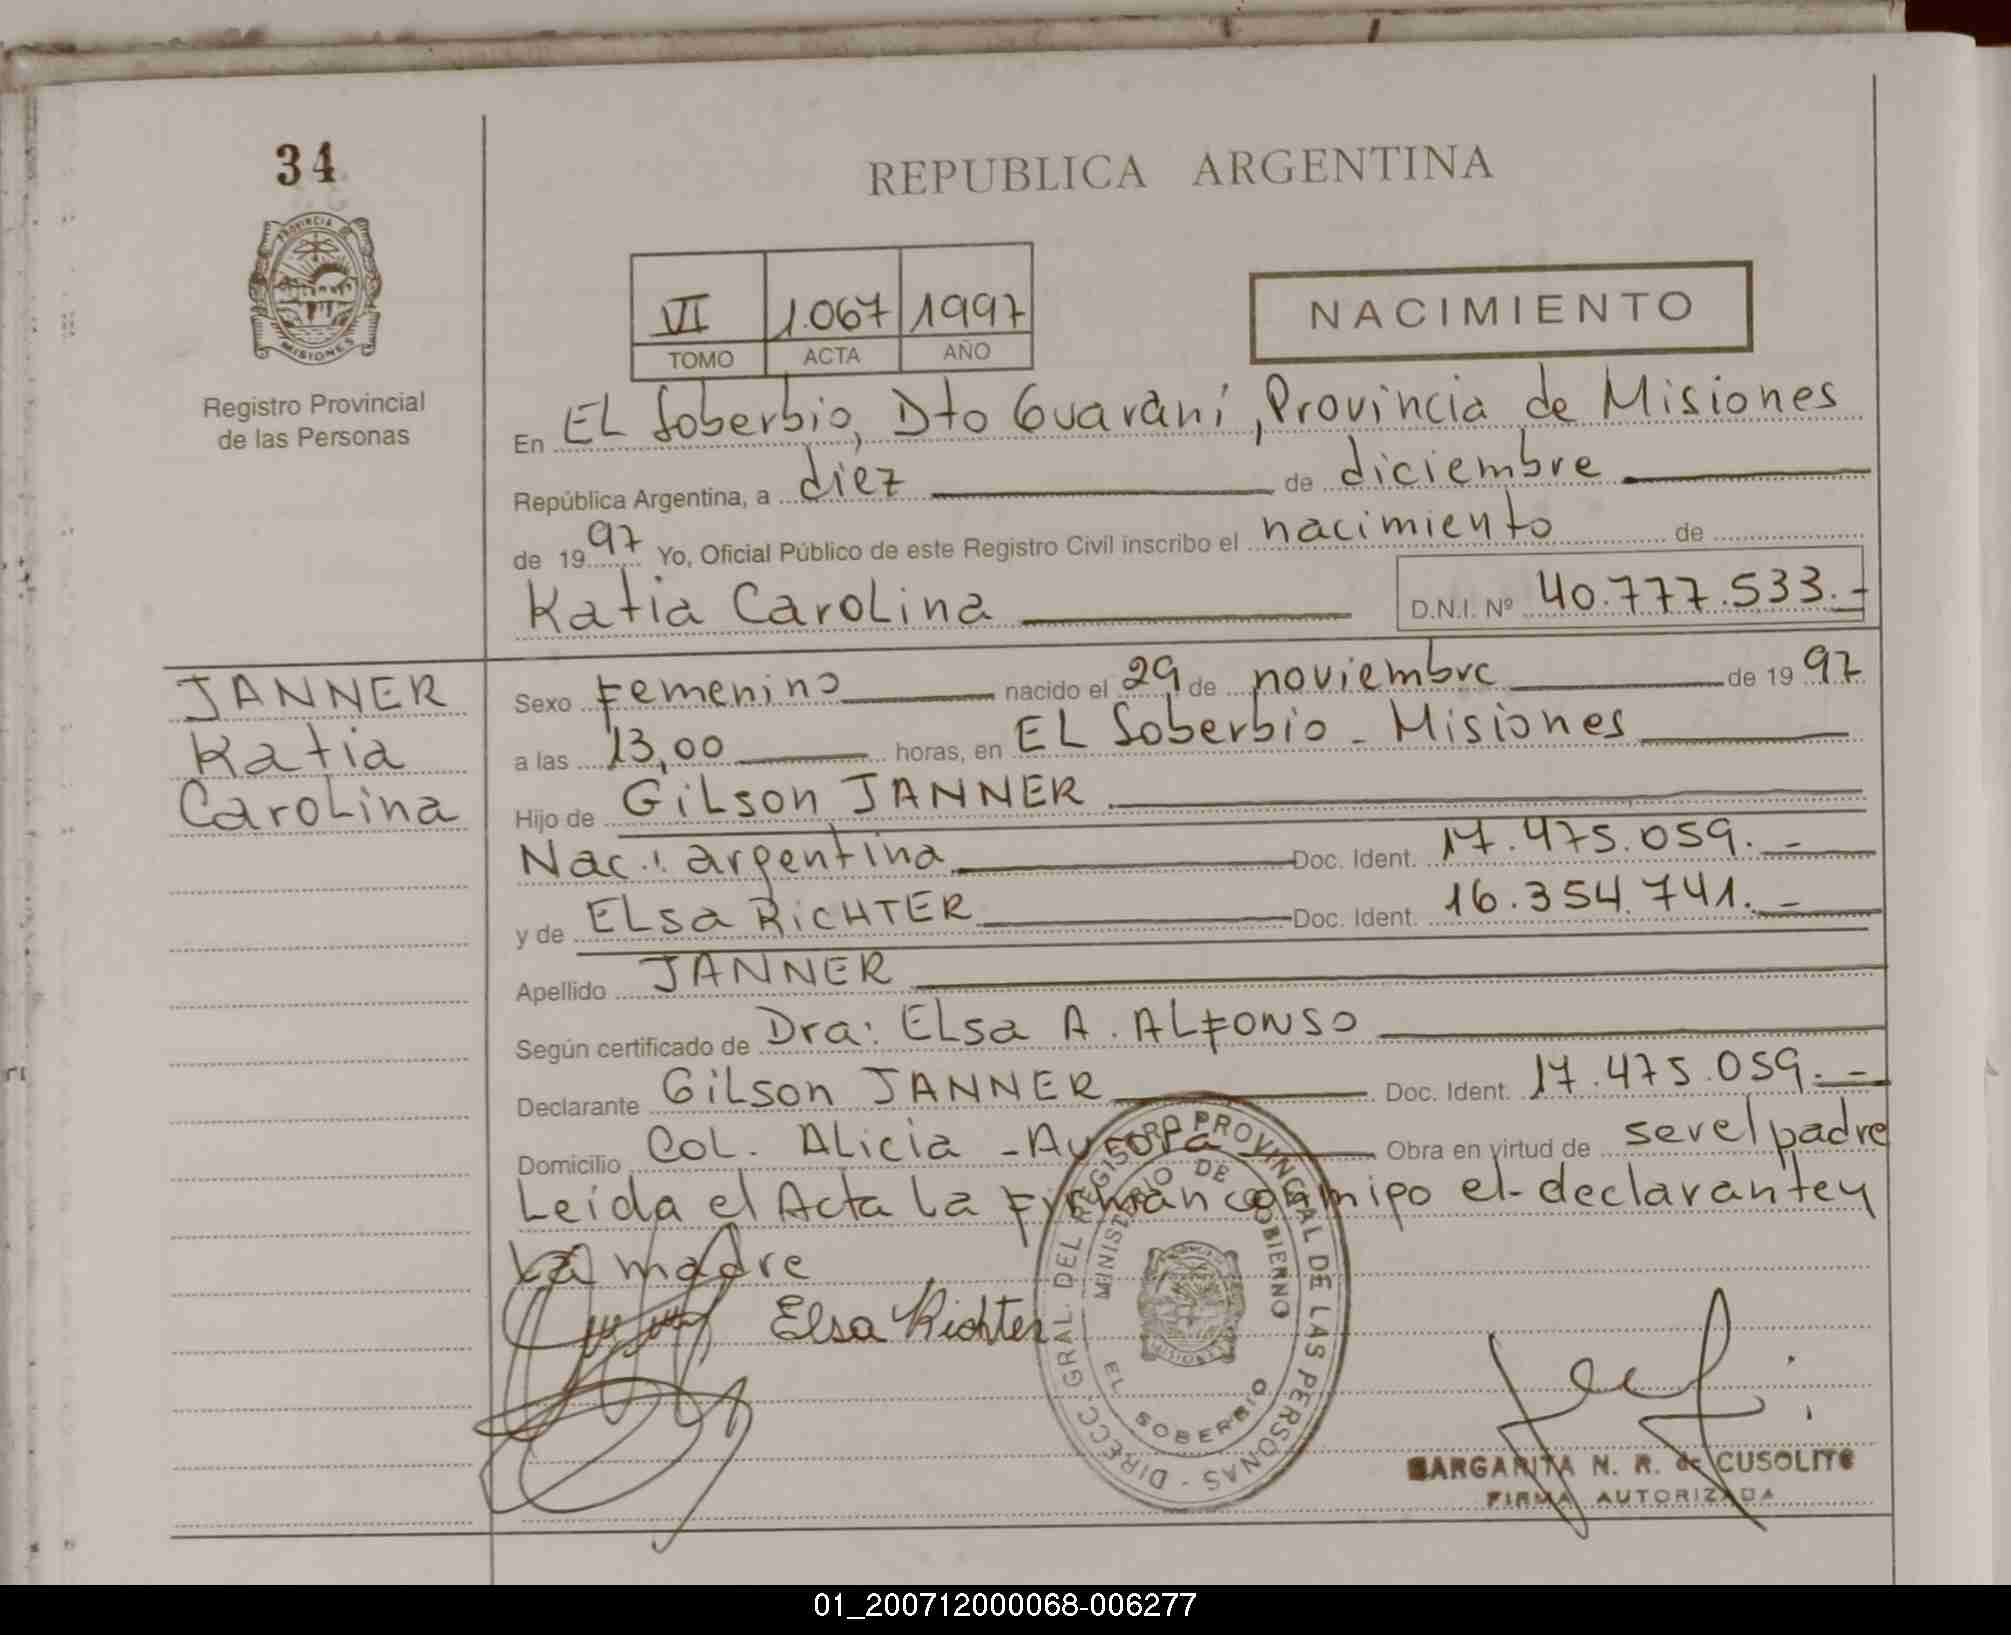 34
PROVINCIA DE
MISIONES
Registro Provincial
de las Personas
REPUBLICA ARGENTINA
VI 1.067 1997
TOMO ACTA AÑO
NACIMIENTO
En EL Soberbio, Dto Guaraní, Provincia de Misiones
República Argentina, a diez de diciembre
de 1997 Yo, Oficial Público de este Registro Civil inscribo el nacimiento de
Katia Carolina D.N.I. Nº 40.777.533.-
JANNER
Katia
Carolina
Sexo Femenino nacido el 29 de noviembre de 1997
a las 13,00 horas, en EL Soberbio - Misiones
Hijo de Gilson JANNER
Nac.: argentina Doc. Ident. 17.475.059.-
y de ELsa RICHTER Doc. Ident. 16.354.741.-
Apellido JANNER
Según certificado de Dra: ELsa A. ALFONSO
Declarante GiLson JANNER Doc. Ident. 17.475.059.-
Domicilio Col. Alicia - Aurora Obra en virtud de ser el padre
Leída el Acta la firman conmigo el declarante y
la madre
Elsa Richter
DIRECC. GRAL. DEL REGISTRO PROVINCIAL DE LAS PERSONAS -
MINISTERIO DE GOBIERNO
EL SOBERBIO
MISIONES
MARGARITA N. R. de CUSOLITO
FIRMA AUTORIZADA
01_200712000068-006277